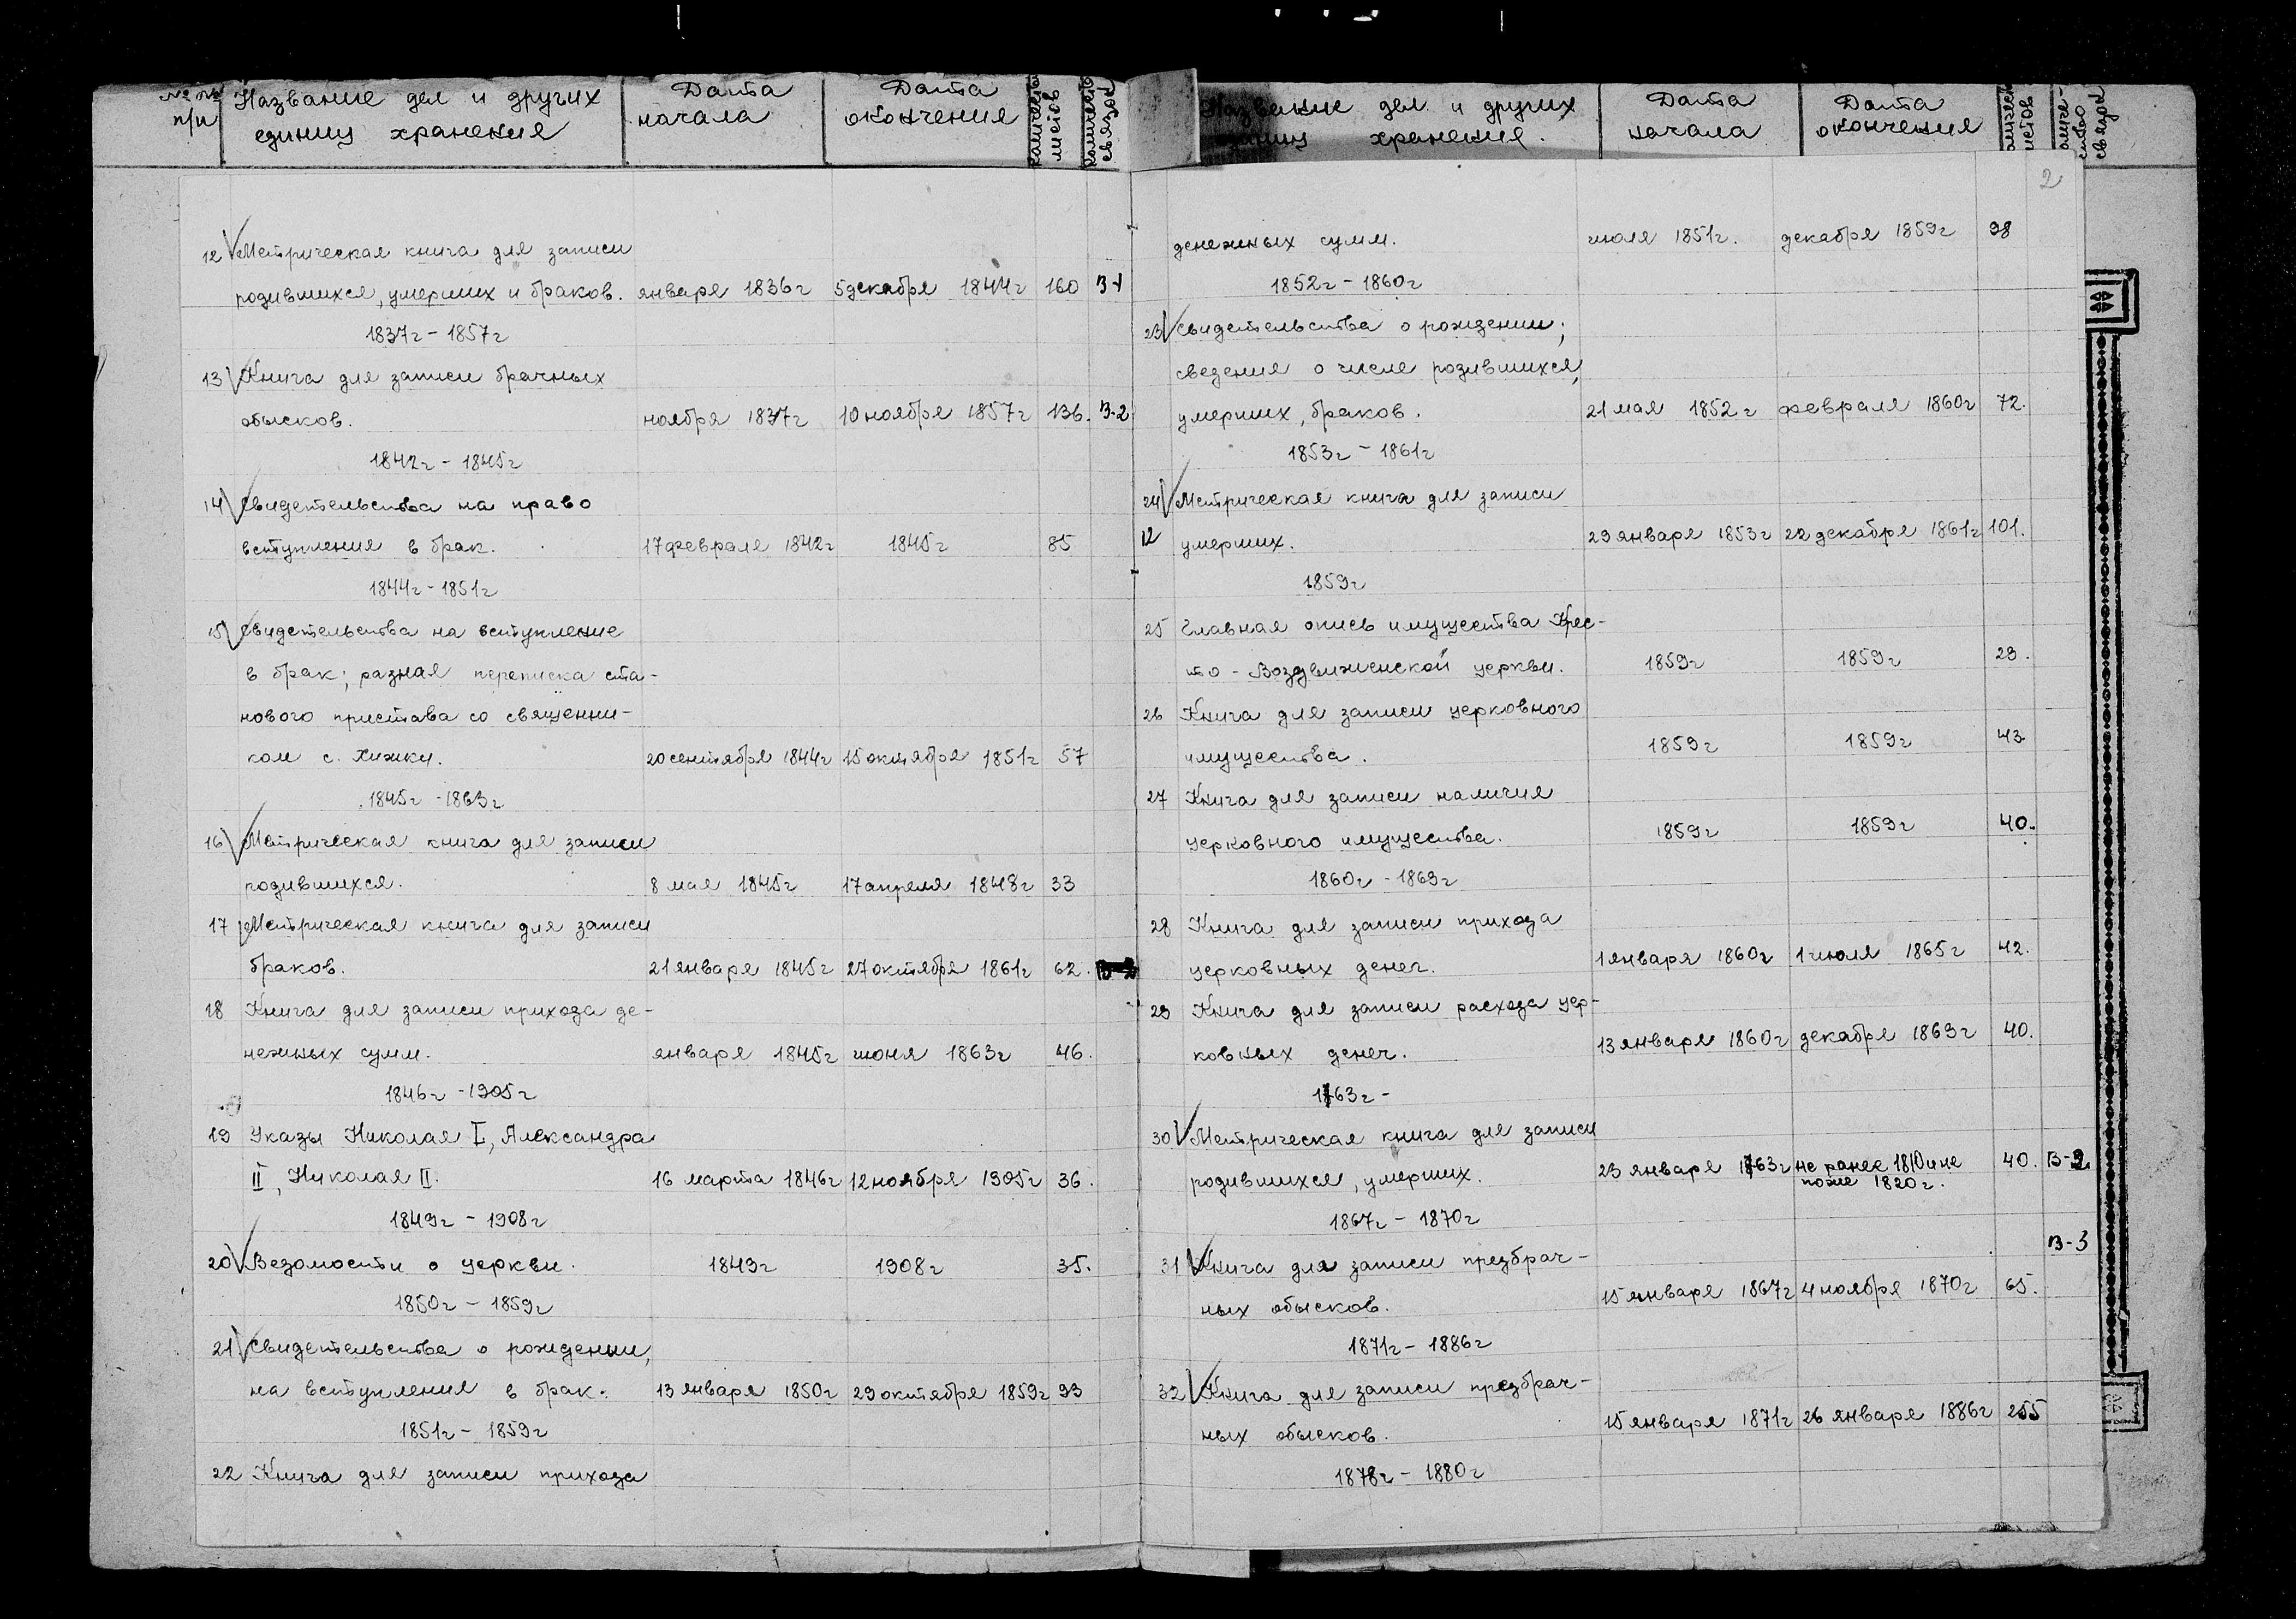 №№ п/п Название дел и других единиц хранения Дата начала Дата окончения количество листов связок
12 Метрическая книга для записи
родившихся, умерших и браков. января 1836г 5 декабря 1844г 160 В-1
1837г - 1857г
13 Книга для записи брачных
обысков. ноября 1837г 10 ноября 1857г 136. В-2
1842г - 1845г
14 Свидетельства на право
вступления в брак. 17 февраля 1842г 1845г 85
1844г - 1851г
15 Свидетельства на вступление
в брак; разная переписка ста-
нового пристава со священни-
ком с. Хижки. 20 сентября 1844г 15 октября 1851г 57
1845г - 1863г
16 Метрическая книга для записи
родившихся. 8 мая 1845г 17 апреля 1848г 33
17 Метрическая книга для записи
браков. 21 января 1845г 27 октября 1861г 62.
18 Книга для записи прихода де-
нежных сумм. января 1845г июня 1863г 46.
1846г - 1905г
19 Указы Николая I, Александра
II, Николая II. 16 марта 1846г 12 ноября 1905г 36.
1849г - 1908г
20 Ведомости о церкви. 1849г 1908г 35.
1850г - 1859г
21 Свидетельства о рождении,
на вступления в брак. 13 января 1850г 29 октября 1859г 93
1851г - 1859г
22 Книга для записи прихода
Название дел и других единиц хранения. Дата начала Дата окончения листов связок
2
денежных сумм. июля 1851г. декабря 1859г 98
1852г - 1860г
23 Свидетельства о рождении;
сведения о числе родившихся,
умерших, браков. 21 мая 1852г февраля 1860г 72.
1853г - 1861г
24 Метрическая книга для записи
12 умерших. 29 января 1853г 22 декабря 1861г 101.
1859г
25 Главная опись имущества Крес-
то - Воздвиженской церкви. 1859г 1859г 29.
26 Книга для записи церковного
имущества. 1859г 1859г 43
27 Книга для записи наличия
церковного имущества. 1859г 1859г 40.
1860г - 1869г
28 Книга для записи прихода
церковных денег. 1 января 1860г 1 июля 1865г 42.
29 Книга для записи расхода цер-
ковных денег. 13 января 1860г декабря 1863г 40.
1763г -
30 Метрическая книга для записи
родившихся, умерших. 23 января 1763г не ранее 1810 и не позже 1820г. 40. В-2
1867г - 1870г
В-3
31 Книга для записи предбрач-
ных обысков. 15 января 1867г 4 ноября 1870г 65.
1871г - 1886г
32 Книга для записи предбрач-
ных обысков. 15 января 1871г 26 января 1886г 255
1878г - 1880г